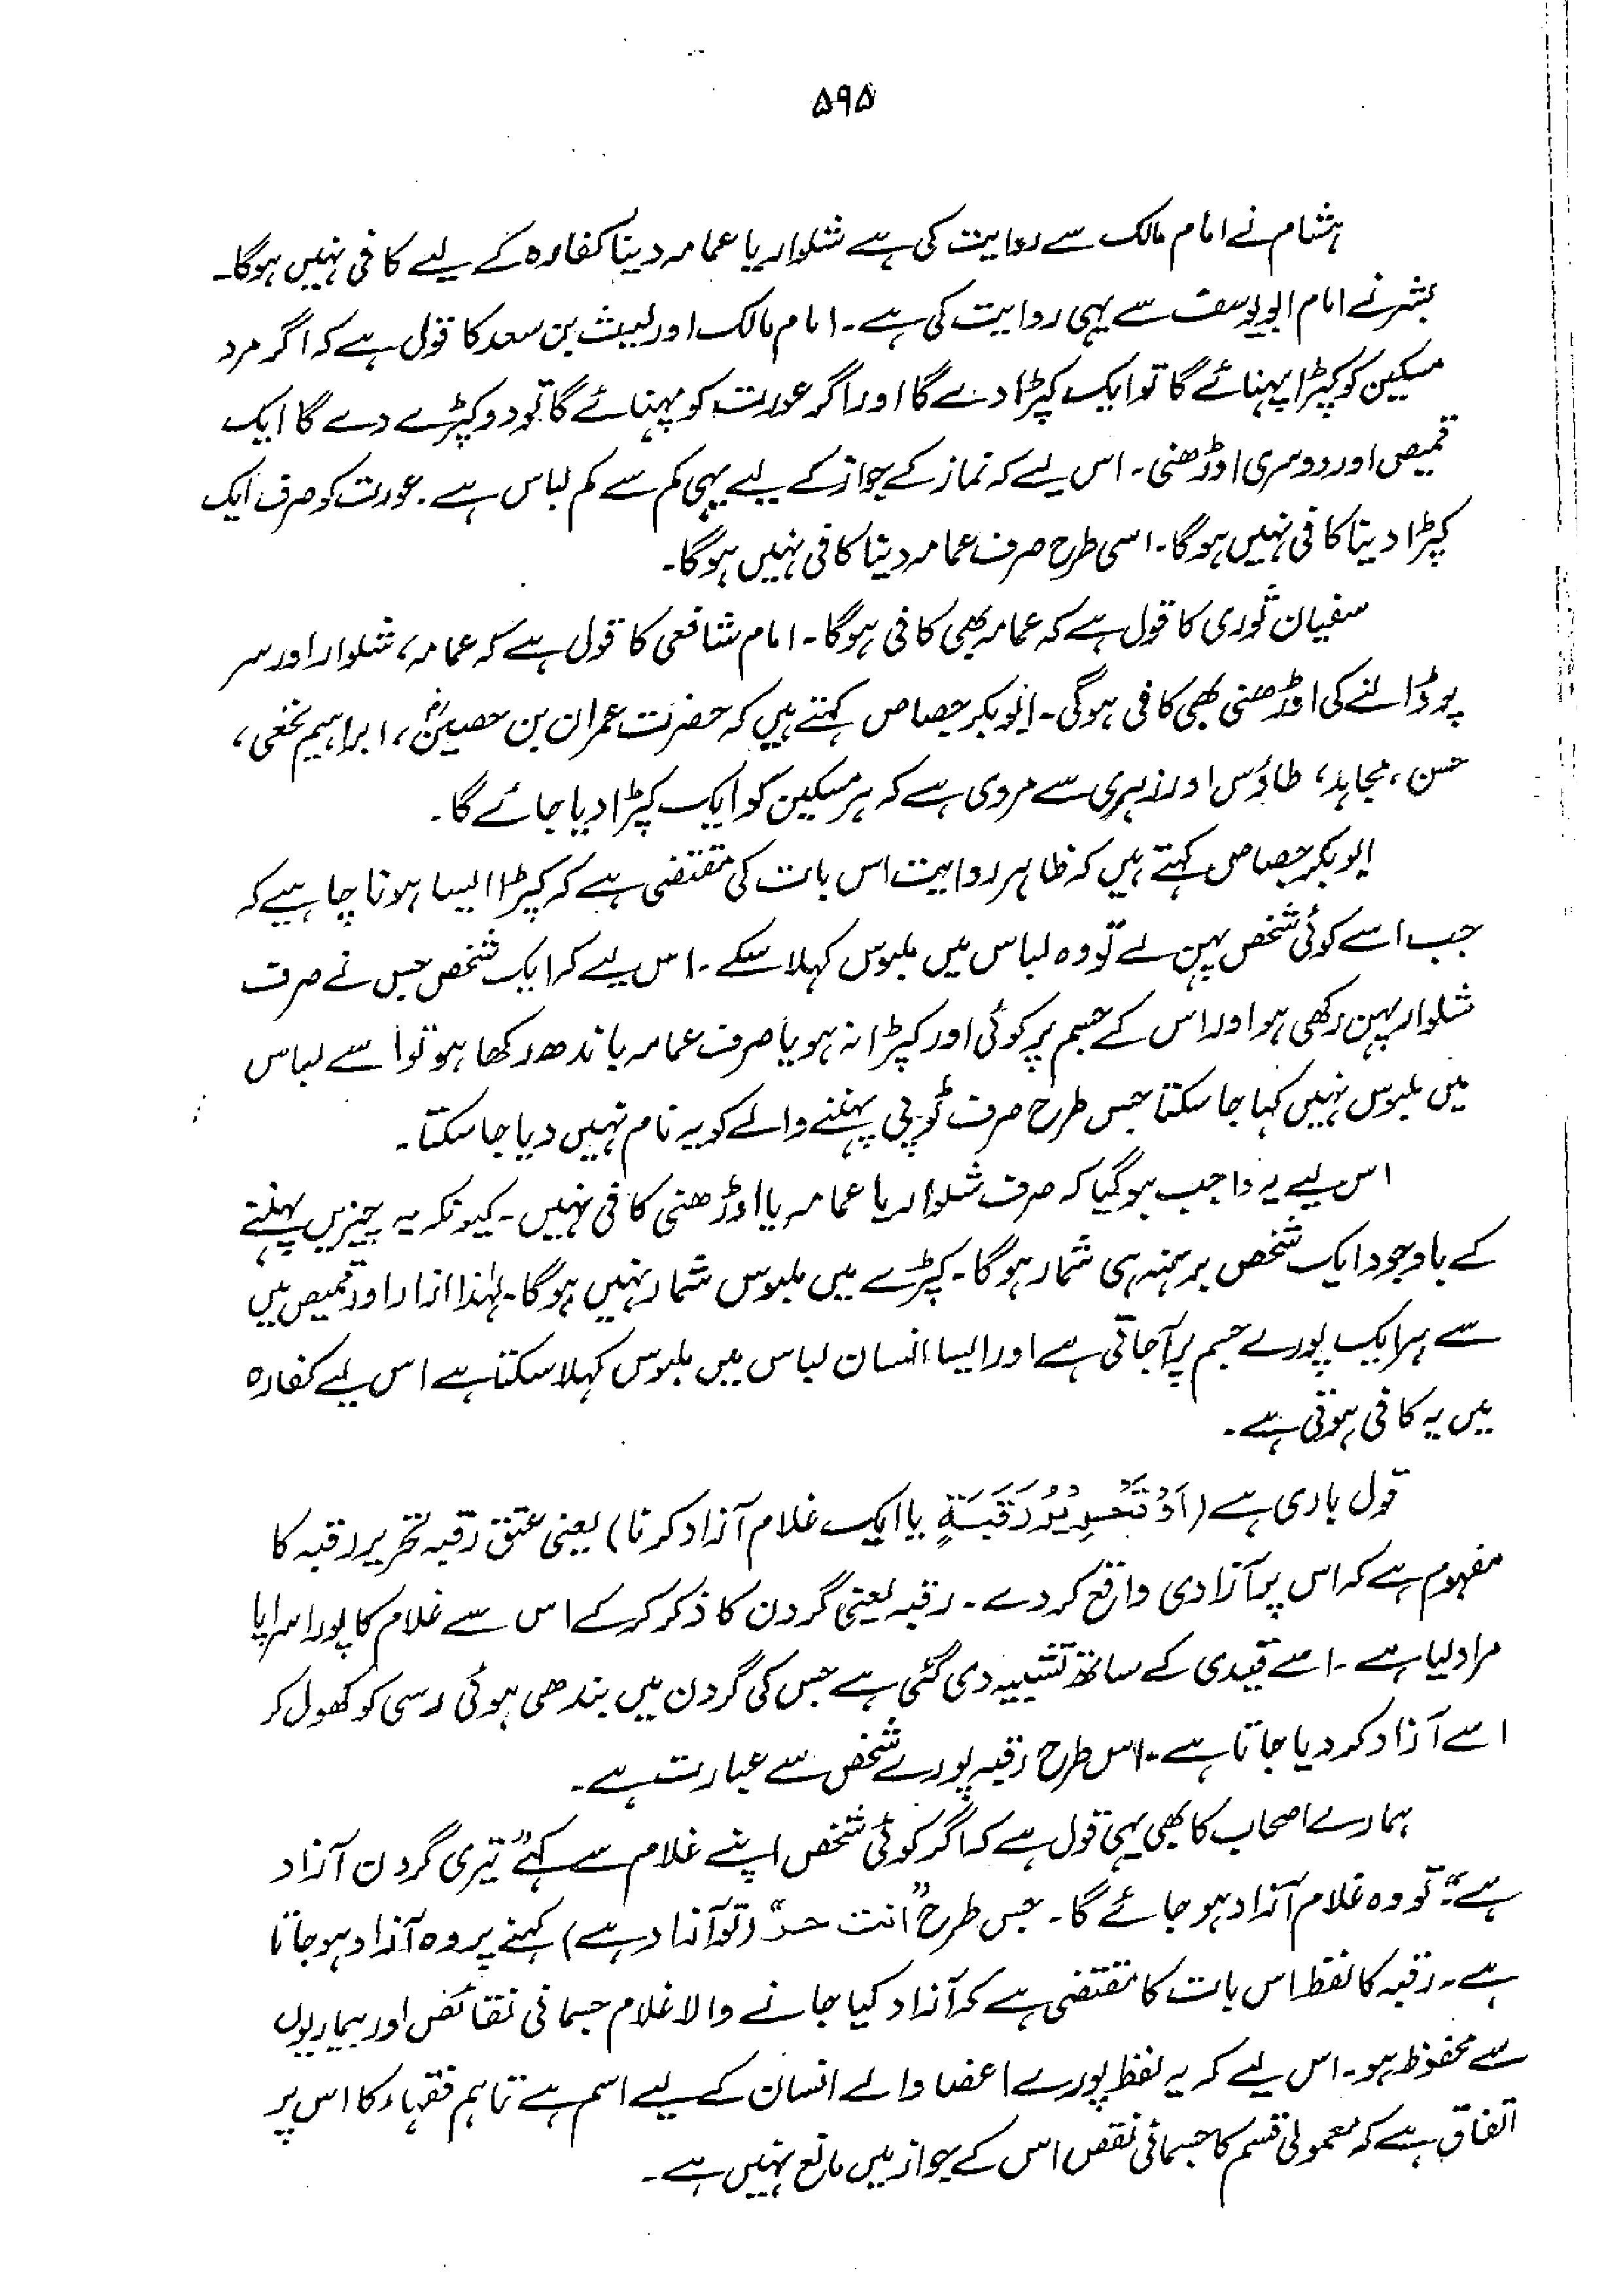 ۵۹۵
ہشام نے امام مالک سے روایت کی ہے شلوار یا عمامہ دینا کفارہ کے لیے کافی نہیں ہوگا۔
بشر نے امام ابویوسف سے یہی روایت کی ہے۔ امام مالک اور لیث بن سعد کا قول ہے کہ اگر مرد
مسکین کو کپڑا پہنائے گا تو ایک کپڑا دے گا اور اگر عورت کو پہنائے گا تو دو کپڑے دے گا ایک
قمیص اور دوسری اوڑھنی۔ اس لیے کہ نماز کے جواز کے لیے یہی کم سے کم لباس ہے۔ عورت کو صرف ایک
کپڑا دینا کافی نہیں ہوگا۔ اسی طرح صرف عمامہ دینا کافی نہیں ہوگا۔
سفیان ثوری کا قول ہے کہ عمامہ بھی کافی ہوگا۔ امام شافعی کا قول ہے کہ عمامہ، شلوار اور سر
پر ڈالنے کی اوڑھنی بھی کافی ہوگی۔ ابوبکر جصاص کہتے ہیں کہ حضرت عمران بن حصینؓ، ابراہیم نخعی،
حسن، مجاہد، طاؤس اور زہری سے مروی ہے کہ ہر مسکین کو ایک کپڑا دیا جائے گا۔
ابوبکر جصاص کہتے ہیں کہ ظاہر روایت اس بات کی مقتضی ہے کہ کپڑا ایسا ہونا چاہیے کہ
جب اسے کوئی شخص پہن لے تو وہ لباس میں ملبوس کہلا سکے۔ اس لیے کہ ایک شخص جس نے صرف
شلوار پہن رکھی ہو اور اس کے جسم پر کوئی اور کپڑا نہ ہو یا صرف عمامہ باندھ رکھا ہو تو اسے لباس
میں ملبوس نہیں کہا جا سکتا جس طرح صرف ٹوپی پہننے والے کو یہ نام نہیں دیا جا سکتا۔
اس لیے یہ واجب ہو گیا کہ صرف شلوار یا عمامہ یا اوڑھنی کافی نہیں۔ کیونکہ یہ چیزیں پہننے
کے باوجود ایک شخص برہنہ ہی شمار ہوگا۔ کپڑے میں ملبوس شمار نہیں ہوگا۔ لہٰذا ازار اور قمیص میں
سے ہر ایک پورے جسم پر آجاتی ہے اور ایسا انسان لباس میں ملبوس کہلا سکتا ہے اس لیے کفارہ
میں یہ کافی ہوتی ہے۔
قول باری ہے (اَوْ تَحْرِيْرُ رَقَبَةٍ یا ایک غلام آزاد کرنا) یعنی عتق رقبہ تحریر رقبہ کا
مفہوم ہے کہ اس پر آزادی واقع کر دے۔ رقبہ یعنی گردن کا ذکر کر کے اس سے غلام کا پورا سراپا
مراد لیا ہے۔ اسے قیدی کے ساتھ تشبیہ دی گئی ہے جس کی گردن میں بندھی ہوئی رسی کو کھول کر
اسے آزاد کر دیا جاتا ہے۔ اس طرح رقبہ پورے شخص سے عبارت ہے۔
ہمارے اصحاب کا بھی یہی قول ہے کہ اگر کوئی شخص اپنے غلام سے کہے "تیری گردن آزاد
ہے" تو وہ غلام آزاد ہو جائے گا۔ جس طرح "انت حرٌّ" (تو آزاد ہے) کہنے پر وہ آزاد ہو جاتا
ہے۔ رقبہ کا لفظ اس بات کا مقتضی ہے کہ آزاد کیا جانے والا غلام جسمانی نقائص اور بیماریوں
سے محفوظ ہو۔ اس لیے کہ یہ لفظ پورے اعضا والے انسان کے لیے اسم ہے تاہم فقہاء کا اس پر
اتفاق ہے کہ معمولی قسم کا جسمانی نقص اس کے جواز میں مانع نہیں ہے۔